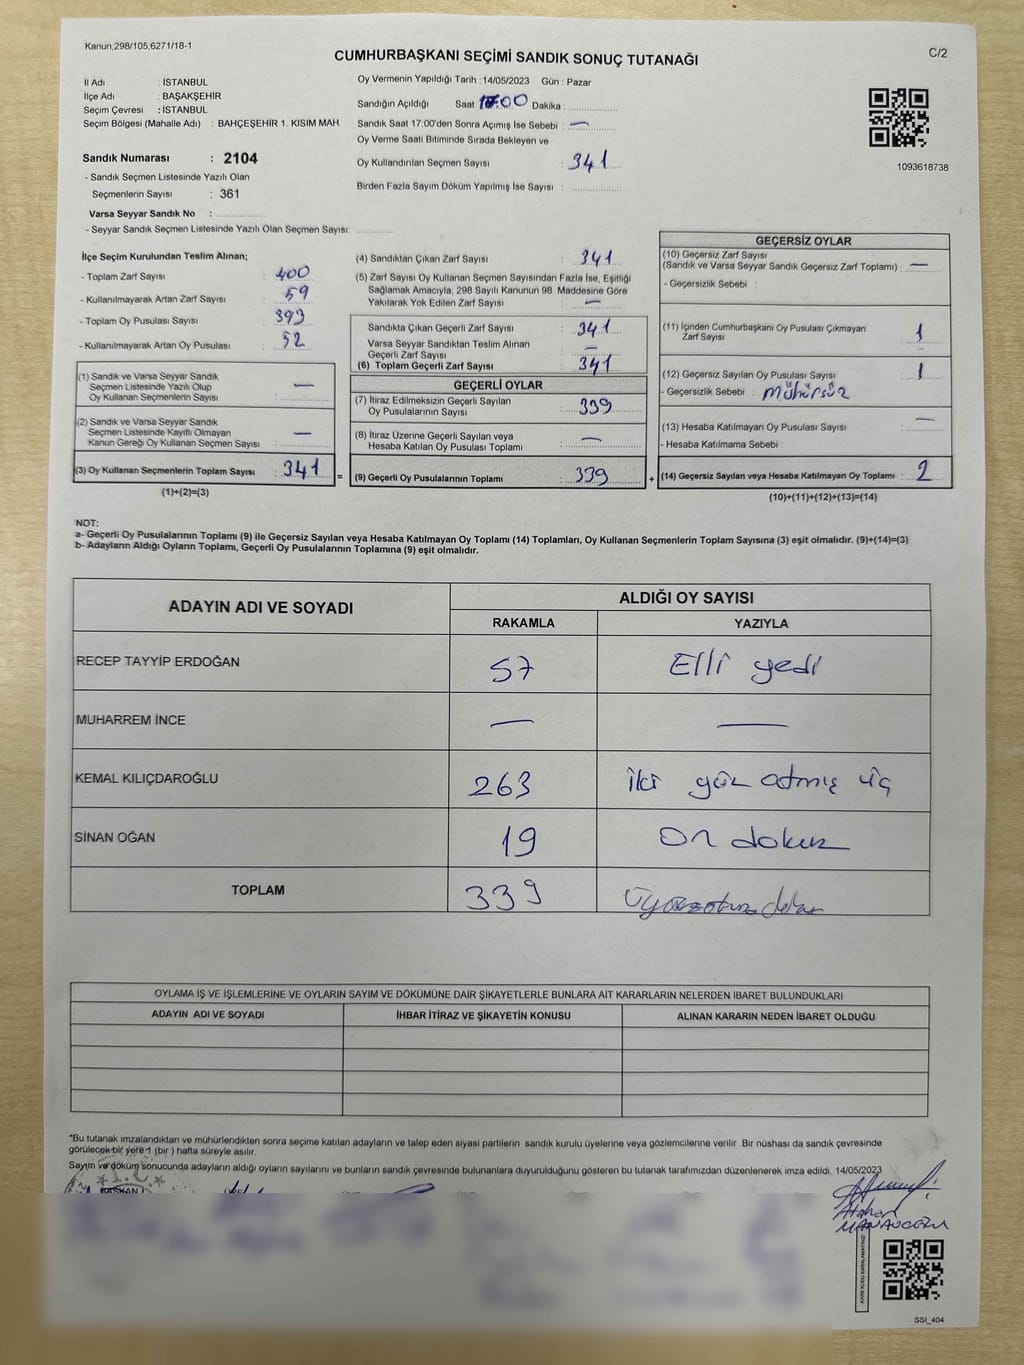 Kanun;298/105;6271/18-1
C/2
CUMHURBAŞKANI SEÇİMİ SANDIK SONUÇ TUTANAĞI
İl Adı : İSTANBUL
İlçe Adı : BAŞAKŞEHİR
Seçim Çevresi : İSTANBUL
Seçim Bölgesi (Mahalle Adı) : BAHÇEŞEHİR 1. KISIM MAH.
Sandık Numarası : 2104
- Sandık Seçmen Listesinde Yazılı Olan
Seçmenlerin Sayısı : 361
Varsa Seyyar Sandık No :
- Seyyar Sandık Seçmen Listesinde Yazılı Olan Seçmen Sayısı:
Oy Vermenin Yapıldığı Tarih : 14/05/2023 Gün : Pazar
Sandığın Açıldığı Saat 17:00 Dakika :
Sandık Saat 17:00'den Sonra Açımış İse Sebebi : —
Oy Verme Saati Bitiminde Sırada Bekleyen ve
Oy Kullandırılan Seçmen Sayısı : 341
Birden Fazla Sayım Döküm Yapılmış İse Sayısı :
1093618738
İlçe Seçim Kurulundan Teslim Alınan;
- Toplam Zarf Sayısı : 400
- Kullanılmayarak Artan Zarf Sayısı : 59
- Toplam Oy Pusulası Sayısı : 393
- Kullanılmayarak Artan Oy Pusulası : 52
(1) Sandık ve Varsa Seyyar Sandık
Seçmen Listesinde Yazılı Olup
Oy Kullanan Seçmenlerin Sayısı : —
(2) Sandık ve Varsa Seyyar Sandık
Seçmen Listesinde Kayıtlı Olmayan
Kanun Gereği Oy Kullanan Seçmen Sayısı : —
(3) Oy Kullanan Seçmenlerin Toplam Sayısı : 341
(1)+(2)=(3)
=
(4) Sandıktan Çıkan Zarf Sayısı : 341
(5) Zarf Sayısı Oy Kullanan Seçmen Sayısından Fazla İse, Eşitliği
Sağlamak Amacıyla, 298 Sayılı Kanunun 98. Maddesine Göre
Yakılarak Yok Edilen Zarf Sayısı : —
Sandıkta Çıkan Geçerli Zarf Sayısı : 341
Varsa Seyyar Sandıktan Teslim Alınan
Geçerli Zarf Sayısı : —
(6) Toplam Geçerli Zarf Sayısı : 341
GEÇERLİ OYLAR
(7) İtiraz Edilmeksizin Geçerli Sayılan
Oy Pusulalarının Sayısı : 339
(8) İtiraz Üzerine Geçerli Sayılan veya
Hesaba Katılan Oy Pusulası Toplamı : —
(9) Geçerli Oy Pusulalarının Toplamı : 339
+
GEÇERSİZ OYLAR
(10) Geçersiz Zarf Sayısı
(Sandık ve Varsa Seyyar Sandık Geçersiz Zarf Toplamı) : —
- Geçersizlik Sebebi :
(11) İçinden Cumhurbaşkanı Oy Pusulası Çıkmayan
Zarf Sayısı : 1
(12) Geçersiz Sayılan Oy Pusulası Sayısı : 1
- Geçersizlik Sebebi : Mühürsüz
(13) Hesaba Katılmayan Oy Pusulası Sayısı : —
- Hesaba Katılmama Sebebi :
(14) Geçersiz Sayılan veya Hesaba Katılmayan Oy Toplamı : 2
(10)+(11)+(12)+(13)=(14)
NOT:
a- Geçerli Oy Pusulalarının Toplamı (9) ile Geçersiz Sayılan veya Hesaba Katılmayan Oy Toplamı (14) Toplamları, Oy Kullanan Seçmenlerin Toplam Sayısına (3) eşit olmalıdır. (9)+(14)=(3)
b- Adayların Aldığı Oyların Toplamı, Geçerli Oy Pusulalarının Toplamına (9) eşit olmalıdır.
ADAYIN ADI VE SOYADI ALDIĞI OY SAYISI
RAKAMLA YAZIYLA
RECEP TAYYİP ERDOĞAN 57 Elli yedi
MUHARREM İNCE — —
KEMAL KILIÇDAROĞLU 263 iki yüz atmış üç
SİNAN OĞAN 19 On dokuz
TOPLAM 339
OYLAMA İŞ VE İŞLEMLERİNE VE OYLARIN SAYIM VE DÖKÜMÜNE DAİR ŞİKAYETLERLE BUNLARA AİT KARARLARIN NELERDEN İBARET BULUNDUKLARI
ADAYIN ADI VE SOYADI İHBAR İTİRAZ VE ŞİKAYETİN KONUSU ALINAN KARARIN NEDEN İBARET OLDUĞU
*Bu tutanak imzalandıktan ve mühürlendikten sonra seçime katılan adayların ve talep eden siyasi partilerin sandık kurulu üyelerine veya gözlemcilerine verilir .Bir nüshası da sandık çevresinde
görülecek bir yere 1 (bir ) hafta süreyle asılır.
Sayım ve döküm sonucunda adayların aldığı oyların sayılarını ve bunların sandık çevresinde bulunanlara duyurulduğunu gösteren bu tutanak tarafımızdan düzenlenerek imza edildi. 14/05/2023
BAŞKAN
KARE KODU KARALAMAYINIZ!
SSI_404